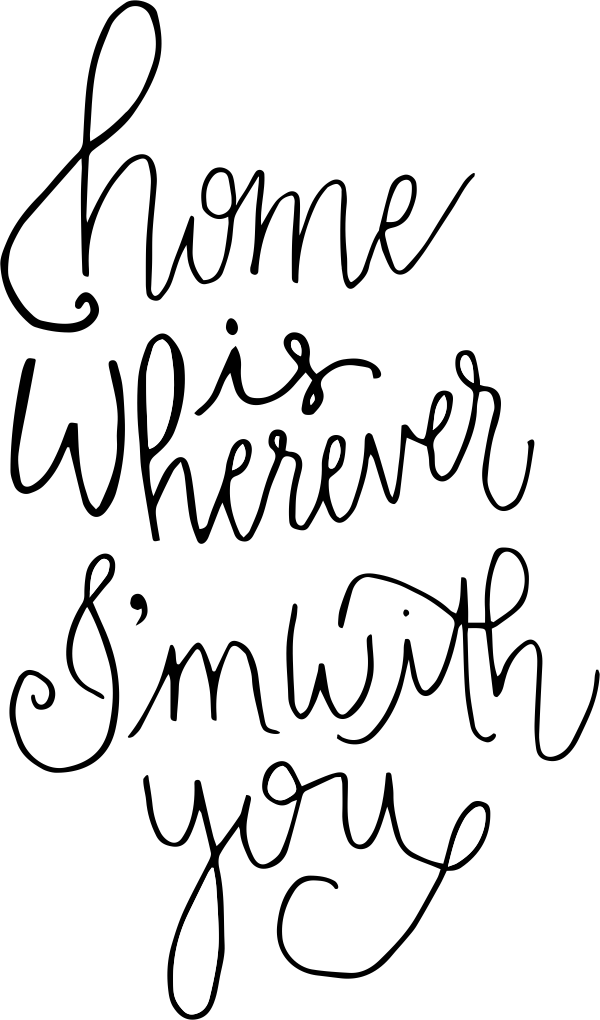 home
is
wherever
I'm with
you